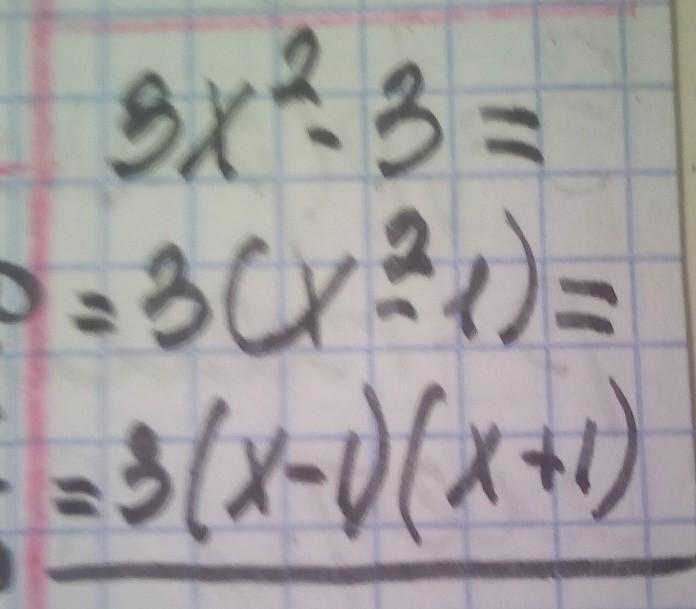 3x² - 3 =
= 3(x² - 1) =
= 3(x-1)(x+1)